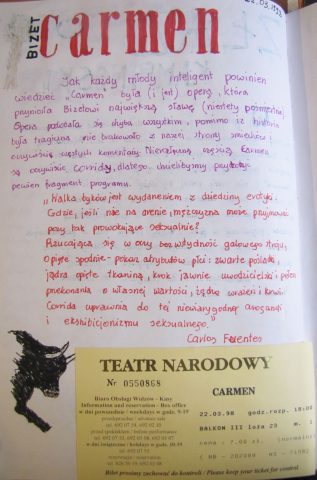 22.03.1998
BIZET
Carmen
Jak każdy młody inteligent powinien
wiedzieć „Carmen" była (i jest) operą, która
przyniosła Bizetowi największą sławę (niestety pośmiertną).
Opera podobała się chyba wszystkim, pomimo iż historia
była tragiczna nie brakowało z naszej strony śmiechów i
oczywiście ciętych komentarzy. Nierozłączną częścią Karmen
są oczywiście corridy, dlatego chcielibyśmy przytoczyć
pewien fragment programu.
„Walka byków jest wydarzeniem z dziedziny erotyki.
Gdzie, jeśli nie na arenie, mężczyzna może przyjmować
pozy tak prowokujące seksualnie?
Rzucająca się w oczy bezwstydność galowego stroju,
opięte spodnie - pokaz atrybutów płci: zwarte pośladki,
jądra opięte tkaniną, krok jawnie uwodzicielski i pełen
przekonania o własnej wartości, żądnę wrażeń i krwi.
Corrida uprawnia do tej niewiarygodnej arogancji
i ekshibicjonizmu seksualnego."
Carlos Fuentes
TEATR NARODOWY
Nr 0550868
Biuro Obsługi Widzów - Kasy
Information and reservation - Box office
w dni powszednie / weekdays w godz. 9-19
CARMEN
22.03.98 godz.rozp. 18:00
BALKON III loża 23 m. 1
cena : 7.00 zł.
Bilet prosimy zachować do kontroli / Please keep your ticket for control